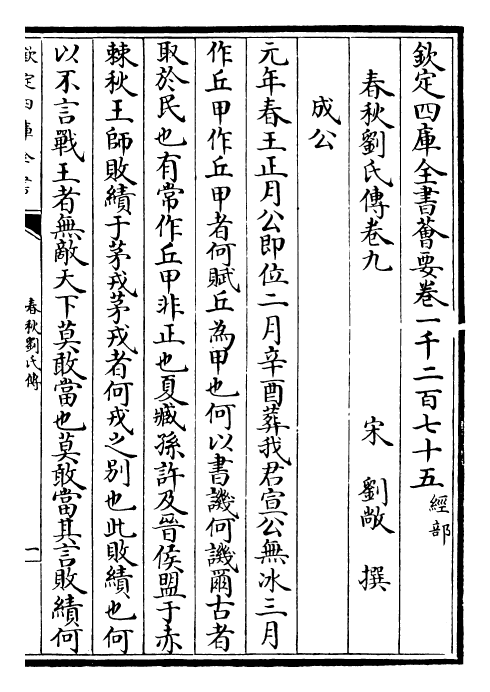 欽定四庫全書薈要卷一千二百七十五經部
春秋劉氏傳卷九
宋劉敞撰
成公
元年春王正月公即位二月辛酉葬我君宣公無冰三月
作丘甲作丘甲者何賦丘為甲也何以書譏何譏爾古者
取於民也有常作丘甲非正也夏臧孫許及晉侯盟于赤
棘秋王師敗績于茅戎茅戎者何戎之别也此敗績也何
以不言戰王者無敵天下莫敢當也莫敢當其言敗績何
欽定四庫全書
春秋劉氏傳
一